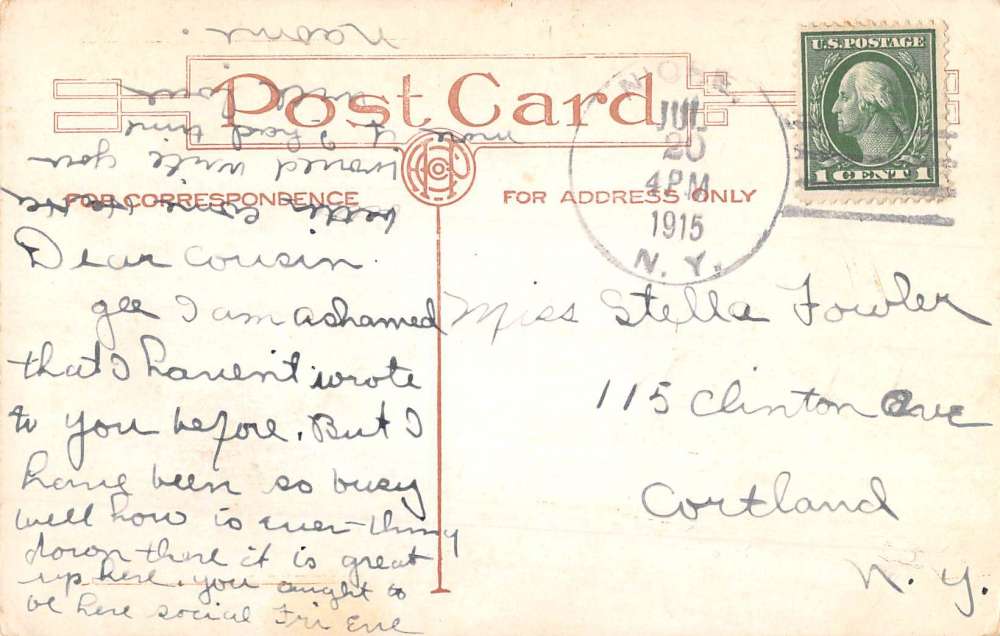 Post Card
FOR CORRESPONDENCE
FOR ADDRESS ONLY
U.S. POSTAGE
1 CENT 1
JUL
20
4 PM
1915
N. Y.
Dear cousin.
gee I am ashamed
that I havent wrote
to you before. But I
have been so busy
well how is ever-thing
down there it is great
up here. you aught to
be here social Fri Eve
better come
would write you
more if had time
with love
Naomi.
Miss Stella Fowler
115 Clinton Ave
Cortland
N. Y.